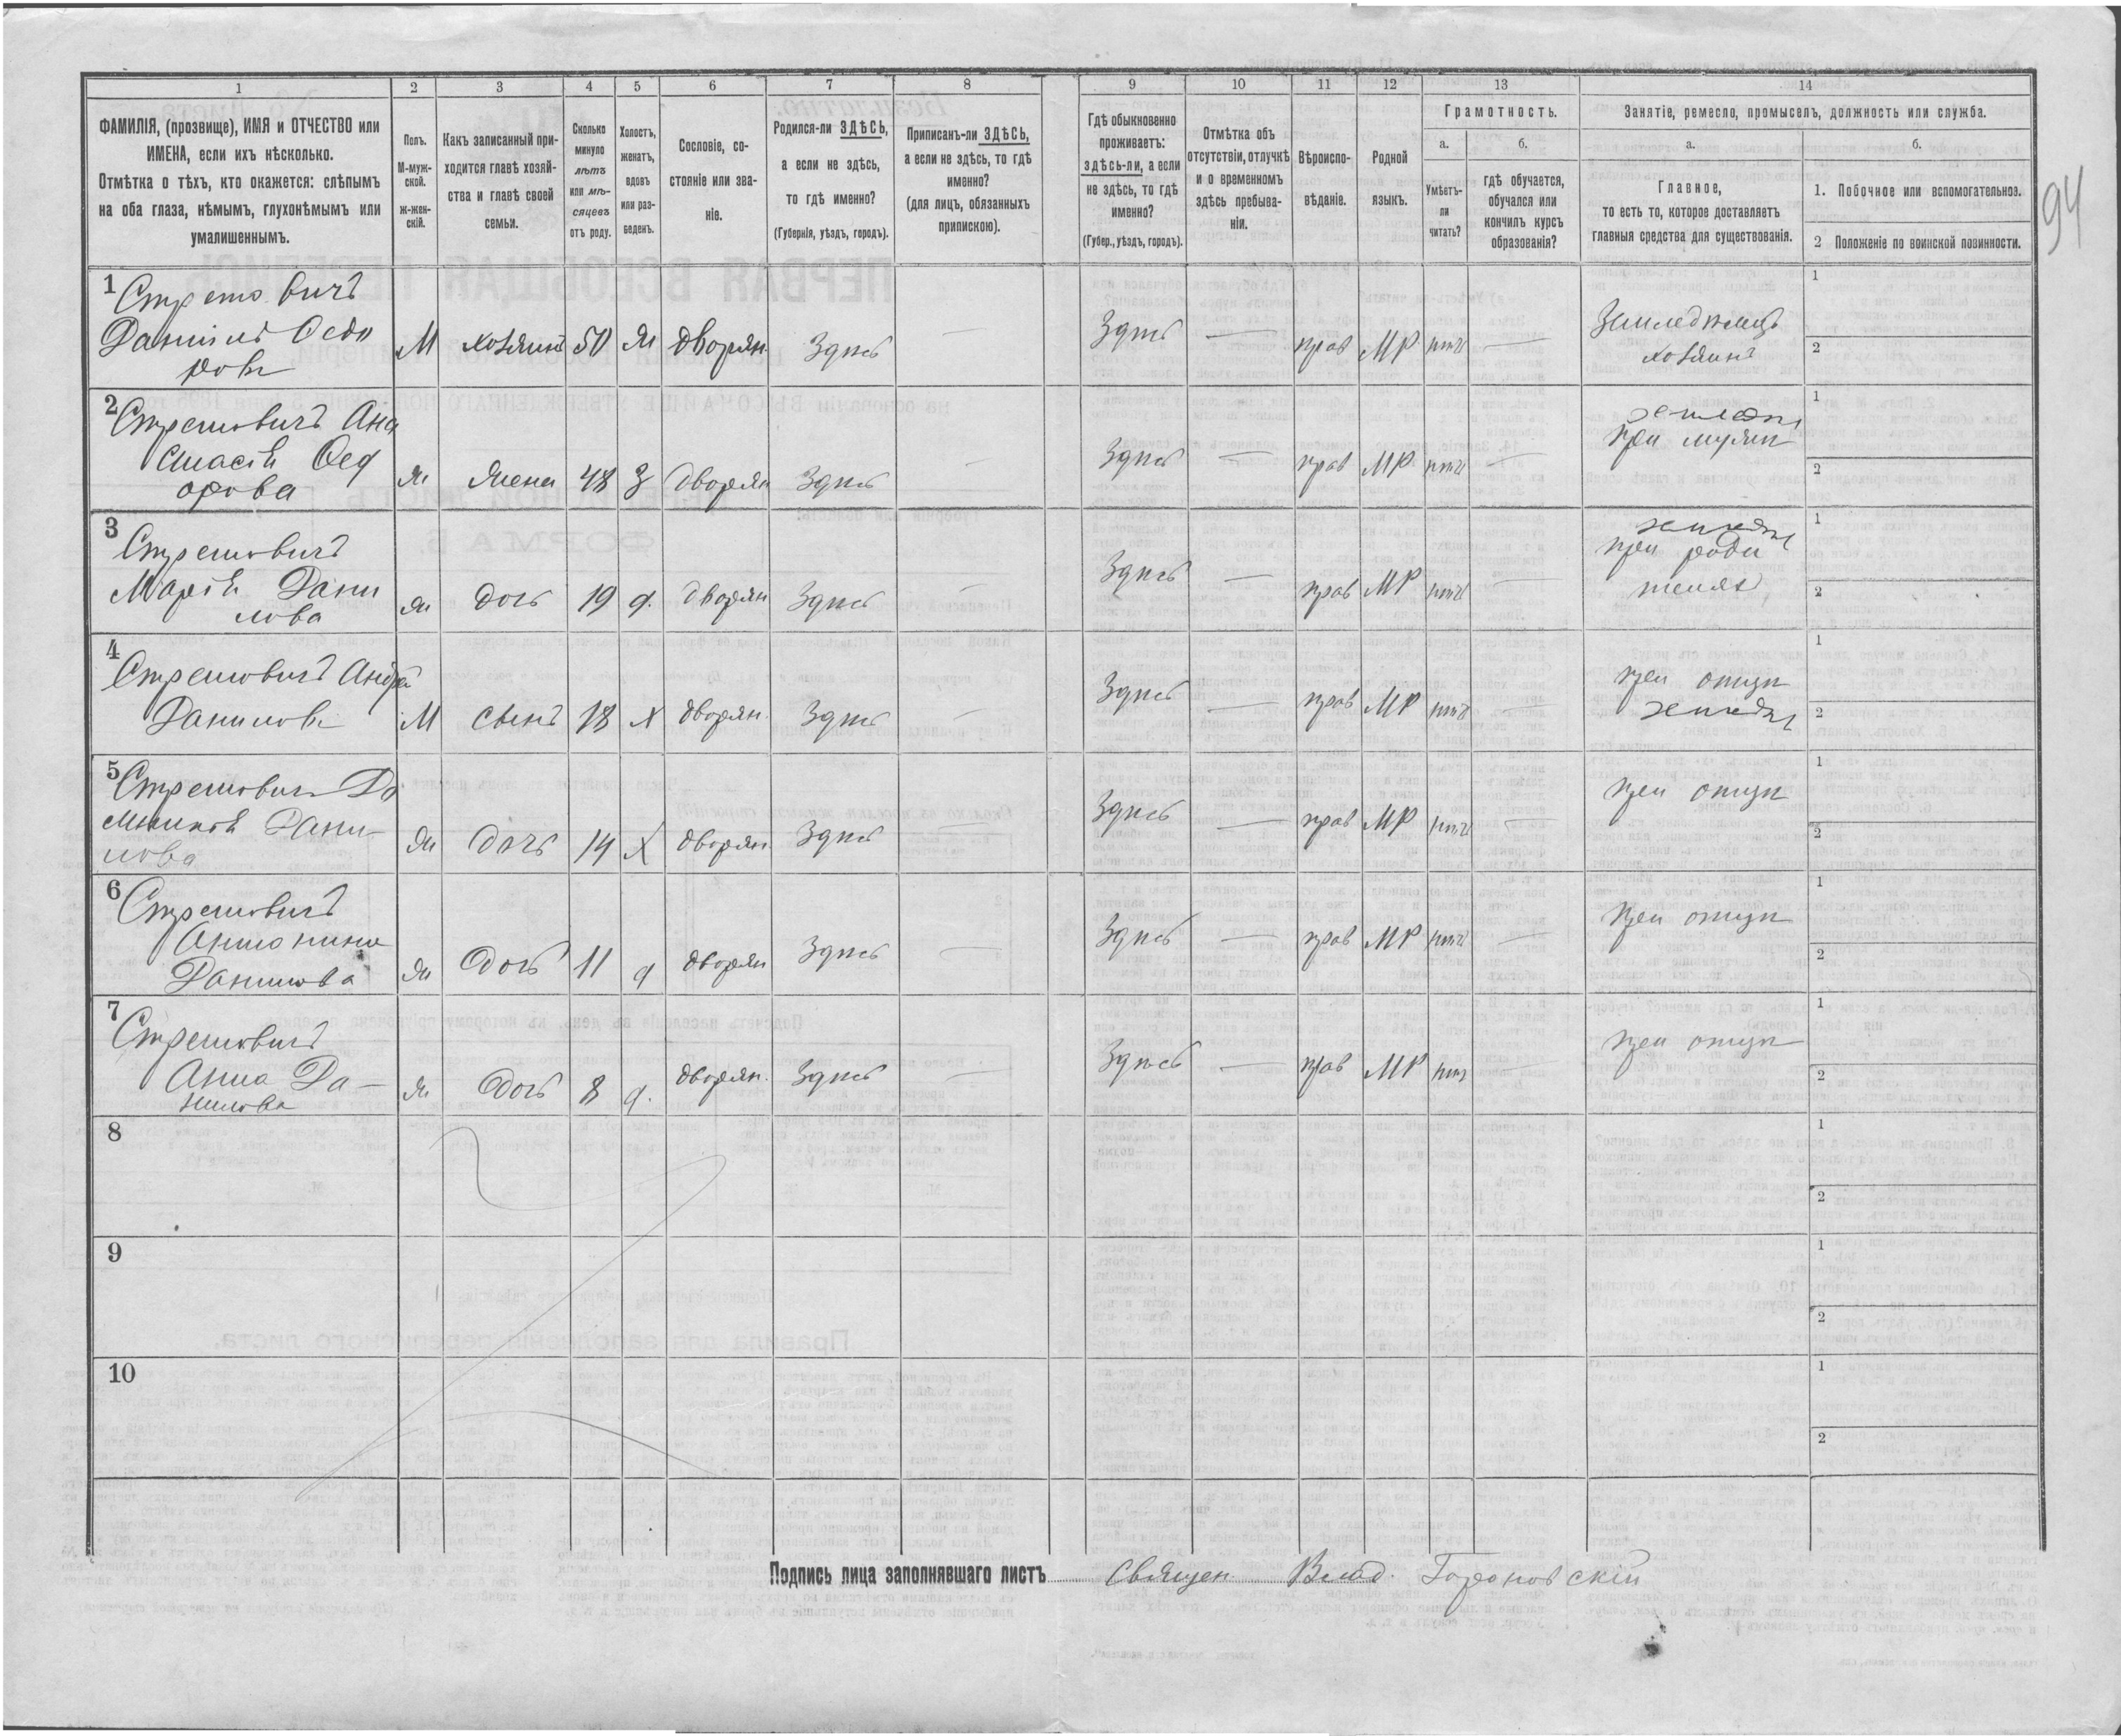 94
1 2 3 4 5 6 7 8 9 10 11 12 13 14
ФАМИЛІЯ, (прозвище), ИМЯ и ОТЧЕСТВО или
ИМЕНА, если ихъ нѣсколько.
Отмѣтка о тѣхъ, кто окажется: слѣпымъ
на оба глаза, нѣмымъ, глухонѣмымъ или
умалишеннымъ.
Полъ.
М-муж-
ской.
ж-жен-
скій.
Какъ записанный при-
ходится главѣ хозяй-
ства и главѣ своей
семьи.
Сколько
минуло
лѣтъ
или мѣ-
сяцевъ
отъ роду.
Холостъ,
женатъ,
вдовъ
или раз-
веденъ.
Сословіе, со-
стояніе или зва-
ніе.
Родился-ли ЗДѢСЬ,
а если не здѣсь,
то гдѣ именно?
(Губернія, уѣздъ, городъ).
Приписанъ-ли ЗДѢСЬ,
а если не здѣсь, то гдѣ
именно?
(для лицъ, обязанныхъ
припискою).
Гдѣ обыкновенно
проживаетъ:
здѣсь-ли, а если
не здѣсь, то гдѣ
именно?
(Губер., уѣздъ, городъ).
Отмѣтка объ
отсутствіи, отлучкѣ
и о временномъ
здѣсь пребыва-
ніи.
Вѣроиспо-
вѣданіе.
Родной
языкъ.
Грамотность.
а.
Умѣетъ-
ли
читать?
б.
гдѣ обучается,
обучался или
кончилъ курсъ
образованія?
Занятіе, ремесло, промыселъ, должность или служба.
а.
Главное,
то есть то, которое доставляетъ
главныя средства для существованія.
б.
1. Побочное или вспомогательное.
2 Положеніе по воинской повинности.
1 Стретовичъ
Даніилъ Ѳедо
ровъ
М хозяинъ 50 Ж дворян. Здѣсь — Здѣсь — прав МР нѣтъ —
Земледѣлецъ
хозяинъ
1
2
2 Стретовичъ Ана
стасія Ѳед
орова
Ж Жена 48 З дворян Здѣсь — Здѣсь — прав МР нѣтъ —
земледѣл
при мужѣ
1
2
3 Стретовичъ
Марія Дани
лова
Ж дочь 19 д. дворян Здѣсь — Здѣсь — прав МР нѣтъ —
земледѣл
при роди
теляхъ
1
2
4 Стретовичъ Андрей
Даниловъ
М сынъ 18 Х дворян. Здѣсь — Здѣсь — прав МР нѣтъ —
при отцѣ
земледѣл
1
2
5 Стретовичъ До
миникія Дани-
лова
Ж дочь 14 Х дворян Здѣсь — Здѣсь — прав МР нѣтъ —
при отцѣ
1
2
6 Стретовичъ
Антонина
Данилова
Ж дочь 11 д дворян Здѣсь — Здѣсь — прав МР нѣтъ —
при отцѣ
1
2
7 Стретовичъ
Анна Да-
нилова
Ж дочь 8 д. дворян. Здѣсь — Здѣсь — прав МР нѣтъ —
при отцѣ
1
2
8
1
2
9
1
2
10
1
2
Подпись лица заполнявшаго листъ Священ. Влад. Горановскій